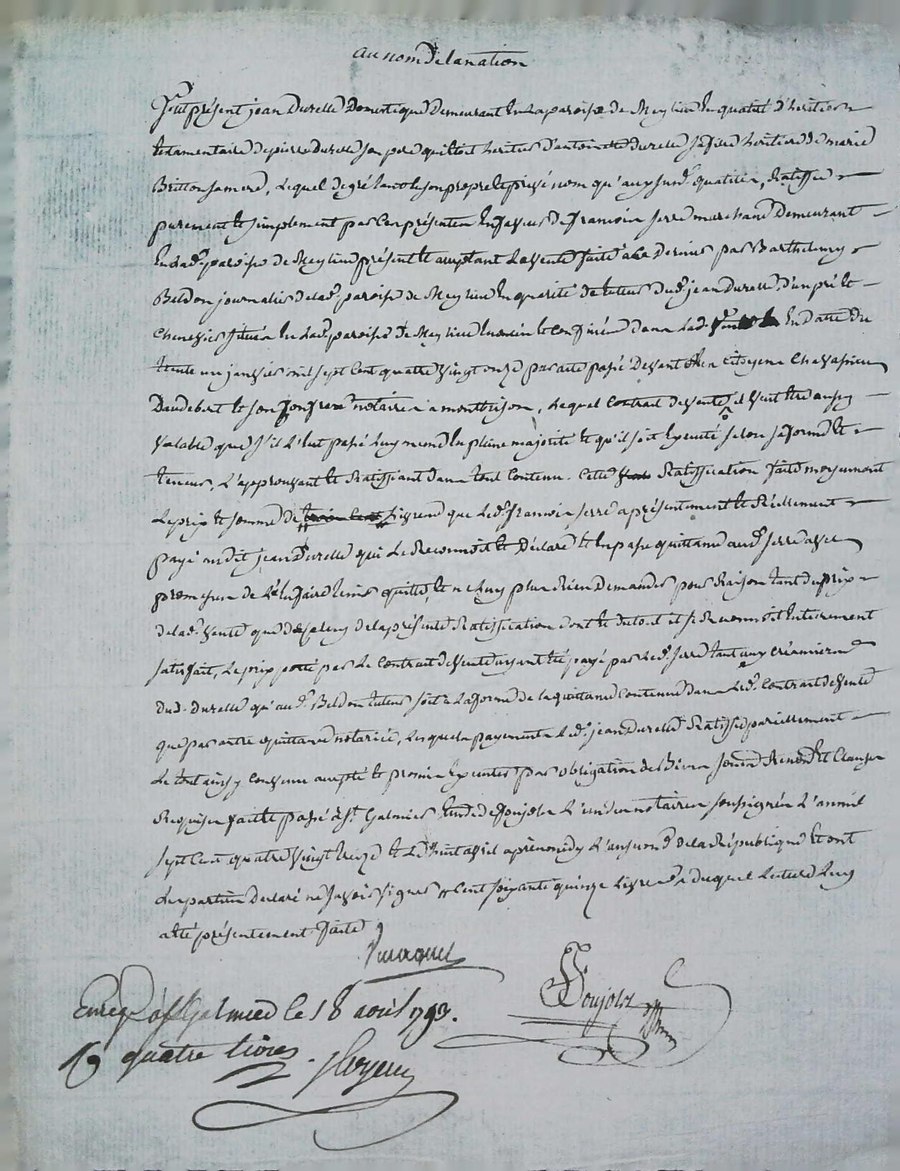 au nom de la nation
Fut présent jean Durelle Domestique Demeurant en la paroisse de Meylieu en qualité d'heritier
testamentaire de pierre Durelle son pere qui étoit heritier d'antoinette Durelle sa fille heritiere de marie
Britton sa mere, Lequel de gré tant de son propre et privé nom qu'aux susd. qualités, Ratiffie
purement et simplement par ces présentes En faveur de francois serre marchand Demeurant
En lad. paroisse de Meylieu présent et acceptant La vente faite à ce Dernier par Barthelemy
Beldon journalier de lad. paroisse de Meylieu En qualité de tuteur dud. jean Durelle, d'un pré et
Chenevier situés en lad. paroisse de Meylieu et confinés Dans Lad. En datte du
trente un janvier mil sept Cent quatre vingt onze par acte passé Devant Les Citoyens Chavassieu
Daudebert et son Confrere notaires a montbrison, Lequel Contrat de vente il veut etre aussy
valable que s'il L'eut passé Luy meme En pleine majorité et qu'il soit Executé selon sa forme et
teneur, L'approuvant et Ratiffiant Dans tout son Contenu. Cette Ratiffication faite moyennant
Le prix et somme de trois Cent Livres que Led. francois serre a présentement et Réellement
payé aud. jean Durelle qui Le Reconnoit et Déclare et En passe quittance aud. serre avec
promesse de L'En faire tenir quitte, et ne Luy plus Rien Demander pour Raison tant du prix
de lad. vente que de Celuy de la présente Ratiffication dont et du tout il se Reconnoit Entierement
satisfait, Le prix porté par Le Contrat de vente ayant été payé par Led. serre tant aux créanciers
Dud. Durelle qu'aud. Beldon tuteur soit a La forme de la quittance Contenue Dans Led. Contrat de vente
que par autre quittance notariée, Lesquels payements Led. jean Durelle Ratiffie pareillement
Le tout ainsy Convenu accepté et promis Executer par obligation de Biens Renond. et Clauses
Requises fait et passé à St. Galmier Etude de Foujols L'un des notaires soussignés L'an mil
sept Cent quatre vingt treize et Le huit avril apres midy L'an second de la République et ont
Les parties Declaré ne savoir signer Cent soixante quinze Livres
acte présentement faite
Foujols
Enreg. à St Galmier le 18 avril 1793.
quatre livres.